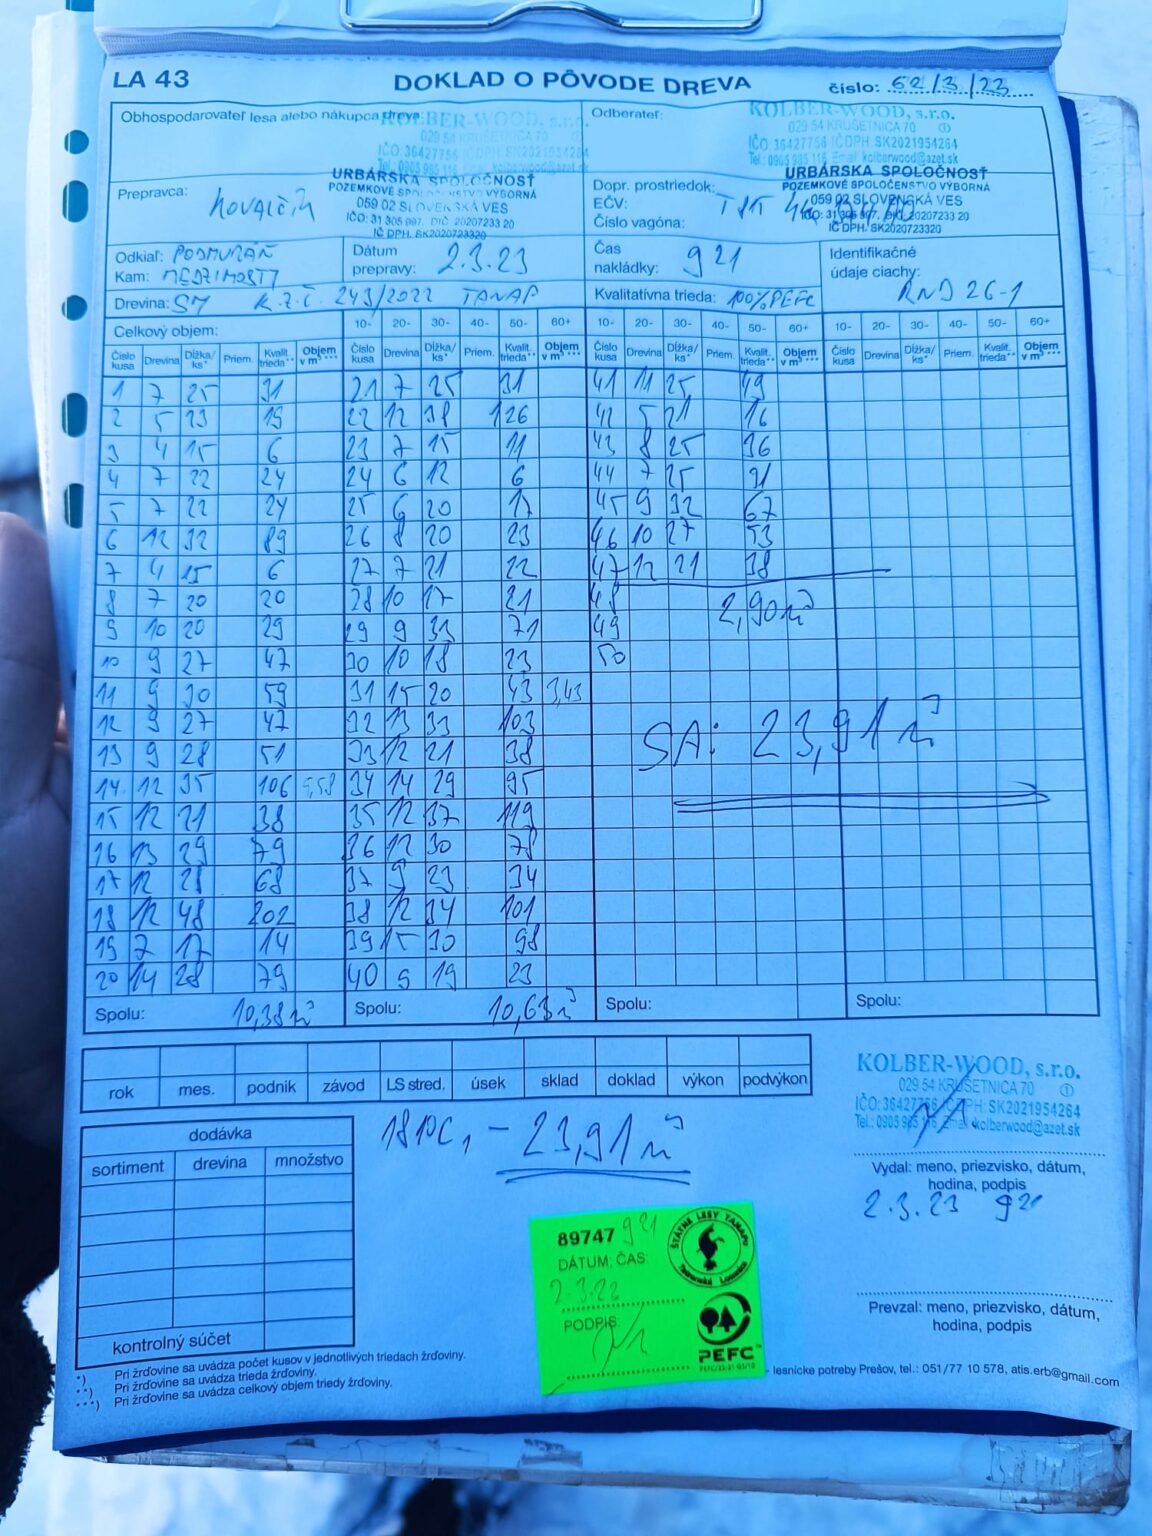 LA 43 DOKLAD O PÔVODE DREVA číslo: 62/3/23
Obhospodarovateľ lesa alebo nákupca dreva:
KOLBER-WOOD, s.r.o.
029 54 KRUŠETNICA 70 ①
IČO: 36427756 IČ DPH: SK2021954264
Tel.: 0905 985 116
URBÁRSKA SPOLOČNOSŤ
POZEMKOVÉ SPOLOČENSTVO VÝBORNÁ
059 02 SLOVENSKÁ VES
IČO: 31 305 997, DIČ: 20207233 20
IČ DPH. SK2020723320
Odberateľ:
KOLBER-WOOD, s.r.o.
029 54 KRUŠETNICA 70 ①
IČO: 36427756 IČ DPH: SK2021954264
Tel.: 0905 985 116 Email: kolberwood@azet.sk
URBÁRSKA SPOLOČNOSŤ
POZEMKOVÉ SPOLOČENSTVO VÝBORNÁ
059 02 SLOVENSKÁ VES
IČO: 31 305 997, DIČ: 20207233 20
IČ DPH. SK2020723320
Prepravca:
Dopr. prostriedok:
EČV:
Číslo vagóna:
Odkiaľ: PODMURÁŇ
Kam: MEDZIMOSTY
Dátum prepravy: 2.3.23
Čas nakládky: 9 21
Identifikačné údaje ciachy: RND 26-1
Drevina: SM K.Z.Č. 243/2022 TANAP
Kvalitatívna trieda: 100% PEFC
Celkový objem: 10- 20- 30- 40- 50- 60+ 10- 20- 30- 40- 50- 60+ 10- 20- 30- 40- 50- 60+
Číslo kusa Drevina Dĺžka/ks* Priem. Kvalit. trieda** Objem v m³*** Číslo kusa Drevina Dĺžka/ks* Priem. Kvalit. trieda** Objem v m³*** Číslo kusa Drevina Dĺžka/ks* Priem. Kvalit. trieda** Objem v m³*** Číslo kusa Drevina Dĺžka/ks* Priem. Kvalit. trieda** Objem v m³***
1 7 25 31 21 7 25 31 41 11 25 49
2 5 23 19 22 12 38 126 42 5 21 16
3 4 15 6 23 7 15 11 43 8 25 36
4 7 22 24 24 6 12 6 44 7 25 31
5 7 22 24 25 6 20 17 45 9 32 67
6 12 32 89 26 8 20 23 46 10 27 53
7 4 15 6 27 7 21 22 47 12 21 38
8 7 20 20 28 10 17 21 48 2,90 m³
9 10 20 29 29 9 33 71 49
10 9 27 47 30 10 18 23 50
11 9 30 59 31 15 20 43 3,43
12 9 27 47 32 13 33 103 SA: 23,91 m³
13 9 28 51 33 12 21 38
14 12 35 106 5,58 34 14 29 95
15 12 21 38 35 12 37 119
16 13 29 79 36 12 30 78
17 12 28 68 37 9 23 34
18 12 48 202 38 12 34 101
19 7 17 14 39 15 30 98
20 14 28 79 40 9 19 23
Spolu: 10,38 m³ Spolu: 10,63 m³ Spolu: Spolu:
rok mes. podnik závod LS stred. úsek sklad doklad výkon podvýkon
KOLBER-WOOD, s.r.o.
029 54 KRUŠETNICA 70 ①
IČO: 36427756 IČ DPH: SK2021954264
Tel.: 0905 985 116 Email: kolberwood@azet.sk
dodávka
sortiment drevina množstvo
– 23,91 m³
Vydal: meno, priezvisko, dátum,
hodina, podpis
2.3.23 9 21
89747 9 21
DÁTUM, ČAS:
PODPIS:
ŠTÁTNE LESY TANAPU
Tatranská Lomnica
PEFC™
Prevzal: meno, priezvisko, dátum,
hodina, podpis
kontrolný súčet
*) Pri žrďovine sa uvádza počet kusov v jednotlivých triedach žrďoviny.
**) Pri žrďovine sa uvádza trieda žrďoviny.
***) Pri žrďovine sa uvádza celkový objem triedy žrďoviny.
- lesnícke potreby Prešov, tel.: 051/77 10 578, atis.erb@gmail.com